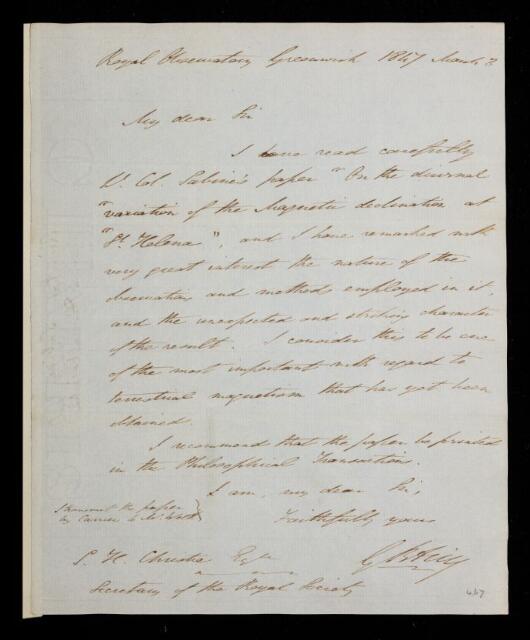 Royal Observatory Greenwich 1847 March
My dear Sir
I have read carefully
Lt. Col. Sabine's paper "On the diurnal
"variation of the Magnetic declination at
"St. Helena", and I have remarked with
very great interest the nature of the
observations and methods employed in it,
and the unexpected and striking character
of the result. I consider this to be one
of the most important with regard to
terrestrial magnetism that has yet been
obtained.
I recommend that the paper be printed
in the Philosophical Transaction.
I am, my dear Sir,
I transmit the paper
by Carrier to
Faithfully yours
S. H. Christie Esqre
G B Airy
Secretary of the Royal Society